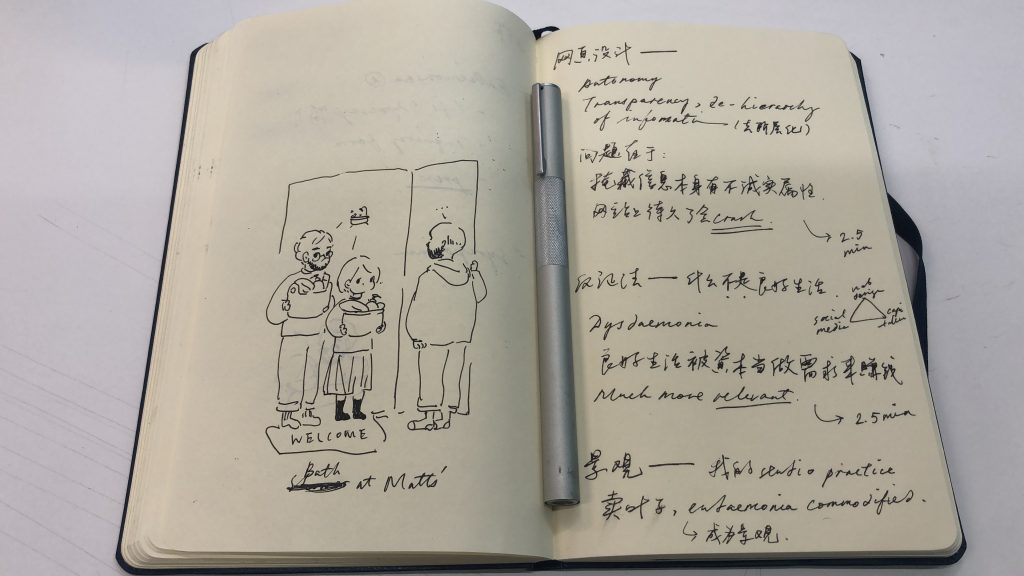 WELCOME
Bath at Matt's
网页设计 —
Autonomy
Transparency, de-hierarchy
of information (去阶层化)
问题在于:
掩藏信息本身有不诚实属性
网站上待久了会crash.
↳ 2.5
min
反证法 — 什么不是良好生活.
web
design
social
media
Dysdaemonia
良好生活被资本当做需求来赚钱
Much more relevant.
↳ 2.5min
景观 — 我的studio practice
卖叶子, eudaemonia commodified.
↳ 成为景观.